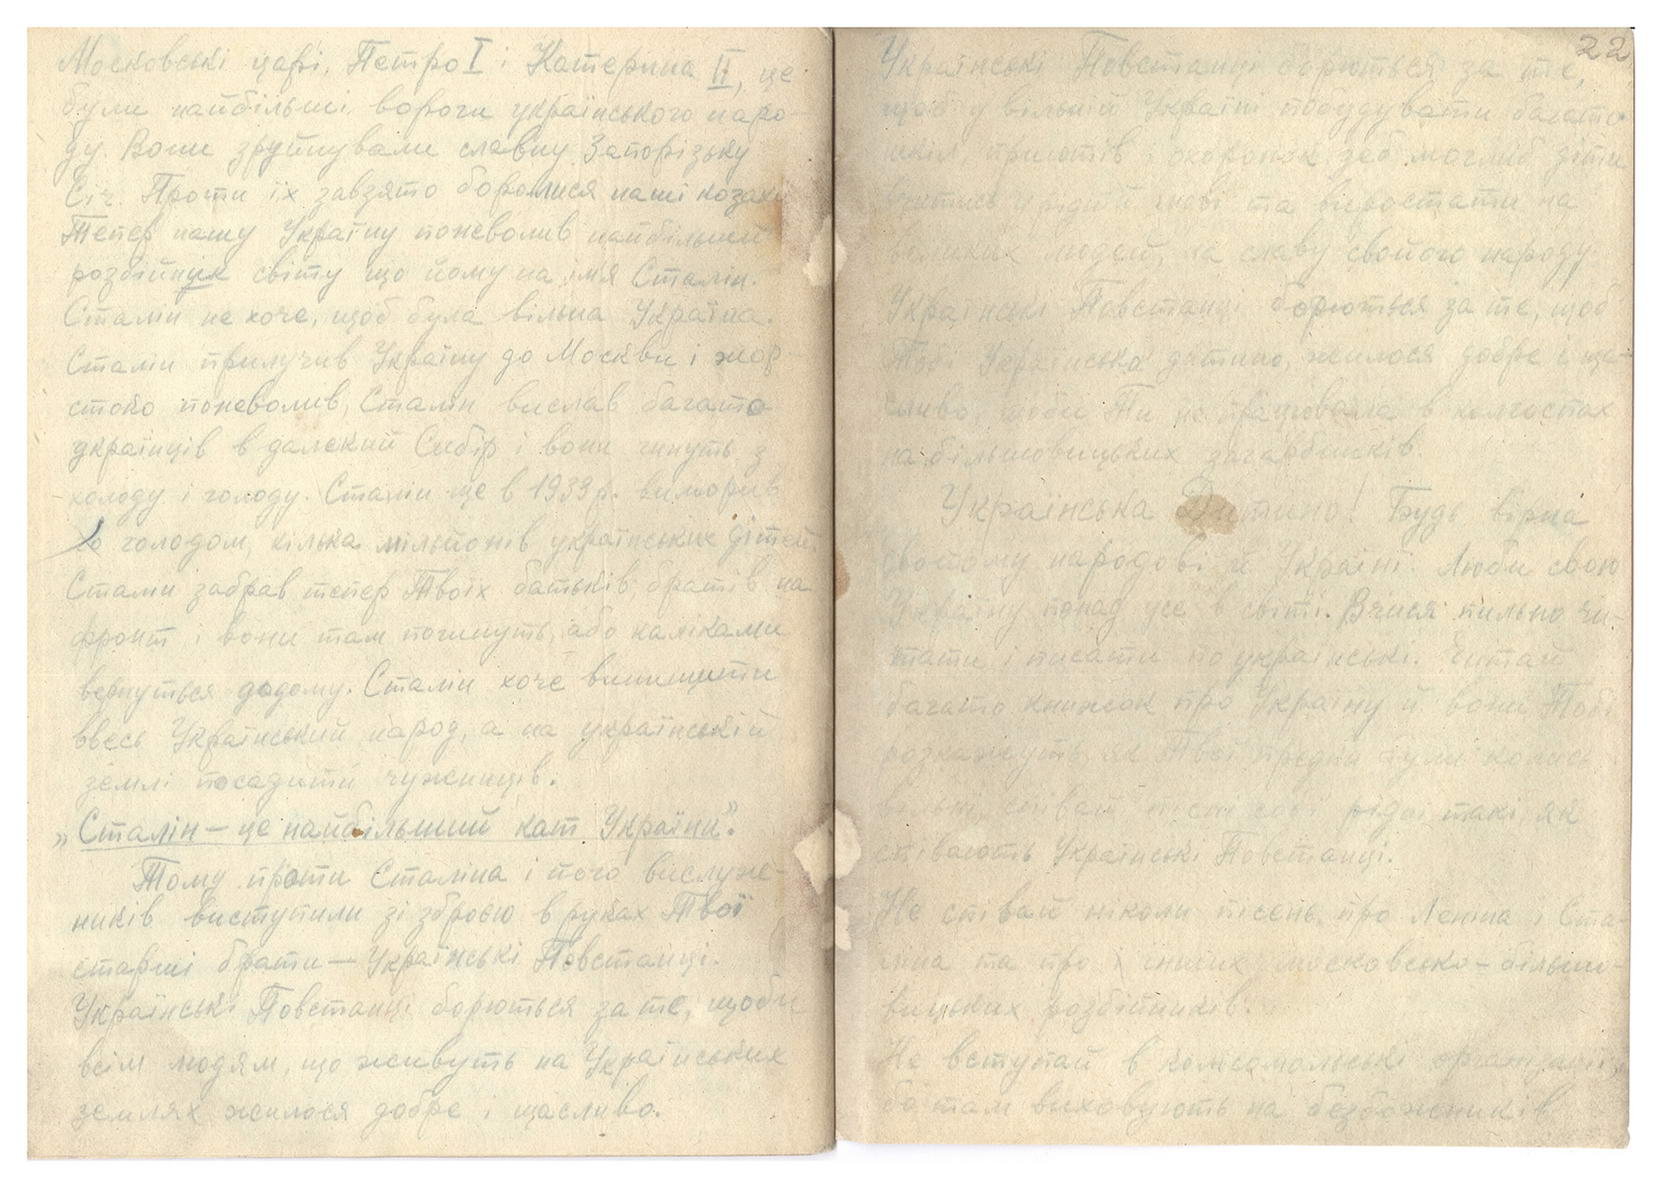 Московські царі, Петро І і Катерина ІІ, це
були найбільші вороги українського наро-
ду. Вони зруйнували славну Запорізьку
Січ. Проти їх завзято боролися наші козаки
Тепер нашу Україну поневолив найбільший
розбійник світу що йому на імя Сталін.
Сталін не хоче, щоб була вільна Україна.
Сталін прилучив Україну до Москви і жор-
стоко поневолив, Сталін вислав багато
українців в далекий Сибір і вони гинуть з
холоду і голоду. Сталін ще в 1933 р. виморив
голодом, кілька мільйонів українських дітей.
Сталин забрав тепер Твоїх батьків, братів на
фронт і вони там погинуть, або каліками
вернуться додому. Сталін хоче винищити
ввесь Український народ, а на українській
землі посадити чужинців.
„Сталін — це найбільший кат України".
Тому проти Сталіна і його вислуж-
ників виступили зі зброєю в руках Твої
старші брати — Українські Повстанці.
Українські Повстанці борються за те, щоби
всім людям, що живуть на Українських
землях жилося добре і щасливо.
22
Українські Повстанці борються за те,
щоб у вільній Україні побудувати багато
шкіл, приютів і охоронок, щоб моглиб діти
вчитись у рідній мові та виростати на
великих людей, на славу свойого народу
Українські Повстанці борються за те, щоб
Тобі Українська дитино, жилося добре і ща-
сливо, щоби Ти не працювала в колгоспах
на більшовицьких загарбників.
Українська Дитино! Будь вірна
своєму народові й Україні. Люби свою
Україну понад усе в світі. Вчися пильно чи-
тати і писати по українські. Читай
багато книжок про Україну й вони Тобі
розкажуть, як Твої предки були колись
вільні, співай пісні собі рідні, такі, як
співають Українські Повстанці.
Не співай ніколи пісень про Леніна і Ста-
ліна та про інших московсько-більшо-
вицьких розбійників.
Не вступай в комсомольські організації,
бо там виховують на безбожників